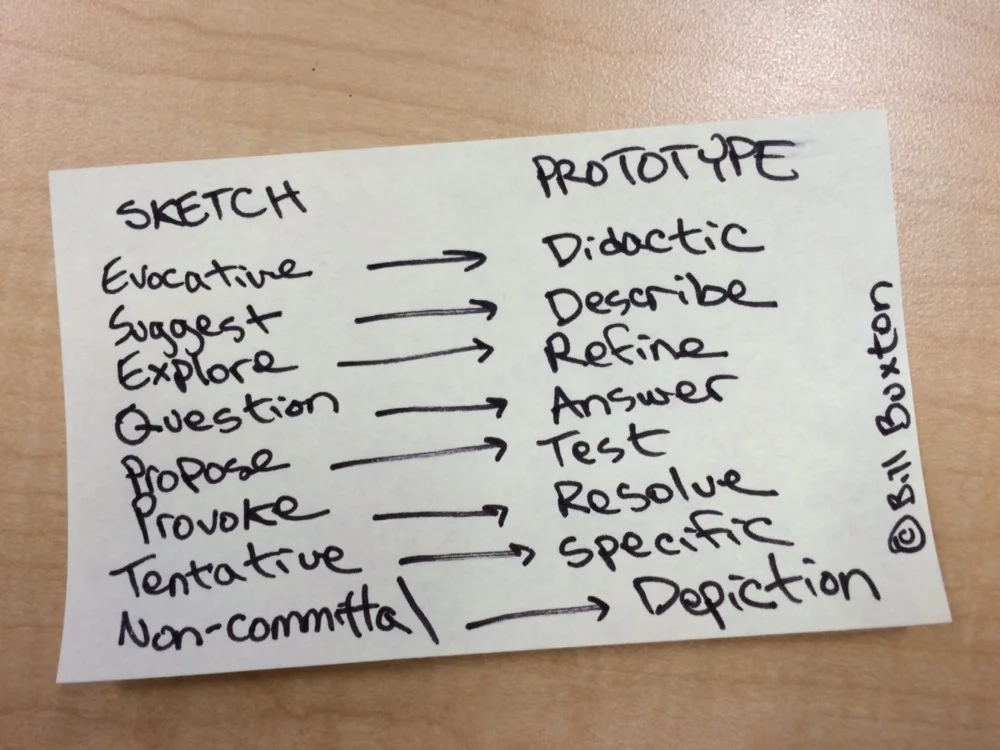 SKETCH PROTOTYPE
Evocative → Didactic
Suggest → Describe
Explore → Refine
Question → Answer
Propose → Test
Provoke → Resolve
Tentative → specific
Non-committal → Depiction
© Bill Buxton